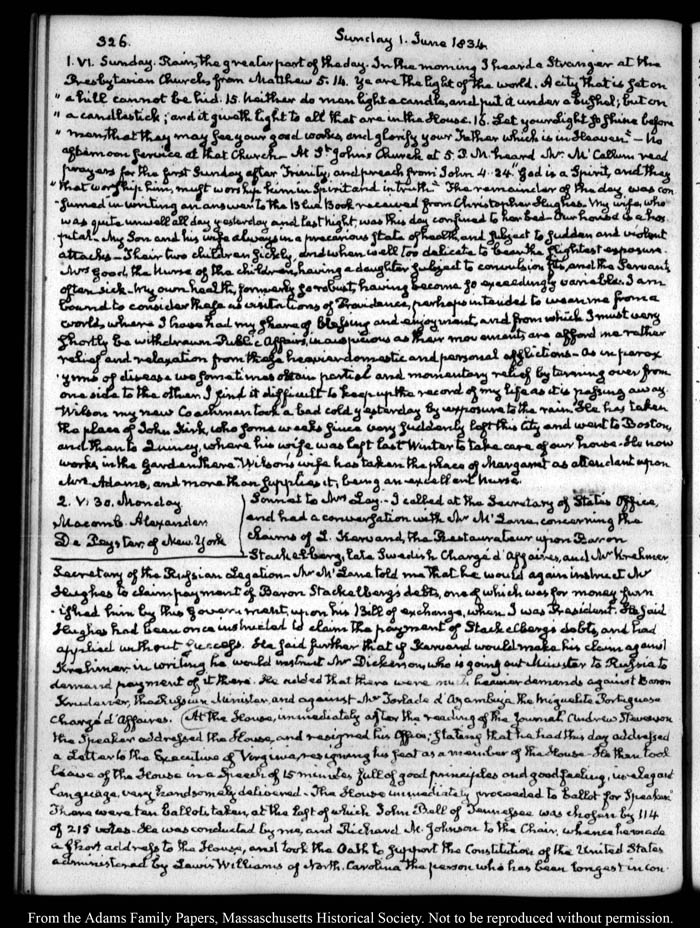 326.
Sunday 1. June 1834.
1. VI. Sunday. Rain, the greater part of the day. In the morning I heard a Stranger at the
Presbyterian Church, from Matthew 5. 14. Ye are the light of the world. A city that is set on
" a hill cannot be hid. 15. Neither do men light a candle, and put it under a bushel; but on
" a candlestick; and it giveth light to all that are in the House. 16. Let your Light so shine before
" men, that they may see your good works, and glorify your Father which is in Heaven" — No
afternoon service at that Church — At St. John's Church at 5. P.M. heard Mr. McCallum read
prayers for the first Sunday after Trinity, and preach from John 4. 24. "God is a Spirit, and they
" that worship him, must worship him in Spirit and in truth." The remainder of the day was con
sumed in writing an answer to the Blue Book received from Christopher Hughes. My wife, who
was quite unwell all day yesterday and last night, was this day confined to her bed. Our house is a hos
pital — My Son and his wife always in a precarious state of health, and subject to sudden and violent
attacks — Their two children sickly, and when well too delicate to bear the slightest exposure
Mrs. Good, the Nurse of the children, having a daughter subject to convulsion fits, and the Servants
often sick. My own health, formerly so robust, having become so exceedingly variable. I am
bound to consider these as visitations of Providence, perhaps intended to wean me from a
world, where I have had my share of blessing and enjoyment, and from which I must very
shortly be withdrawn. Public Affairs, inauspicious as their movements are afford me rather
relief and relaxation from these heavier domestic and personal afflictions — As in parox
ysms of disease we sometimes obtain partial and momentary relief by turning over from
one side to the other. I find it difficult to keep up the record of my life as it is passing away.
Wilson my new Coachman took a bad cold yesterday by exposure to the rain. He has taken
the place of John Kirk, who some weeks since very suddenly left this City and went to Boston,
and then to Quincy, where his wife was left last Winter to take care of our house. He now
works in the Garden there. Wilson's wife has taken the place of Margaret as attendant upon
Mrs. Adams, and more than supplies it, being an excellent Nurse.
2. V. 30. Monday
Macomb. Alexander
De Peyster, of New York
Sonnet to Mrs. Lay. — I called at the Secretary of State's Office,
and had a conversation with Mr. McLane, concerning the
Claims of L. Kervand, the Restaurateur upon Baron
Stackelberg, late Swedish Chargé d'Affaires, and Mr. Krehmer
Secretary of the Russian Legation — Mr. McLane told me that he would again instruct Mr.
Hughes to claim payment of Baron Stackelberg's debts, one of which was for money furn
ished him by this Government, upon his Bill of exchange, when I was President. He said
Hughes had been once instructed to claim the payment of Stackelberg's debts, and had
applied without success. He said further that if Kervand would make his claim against
Krehmer in writing he would instruct Mr. Dickerson, who is going out Minister to Russia to
demand payment of it there. He added that there were much heavier demands against Baron
Krudener, the Russian Minister, and against Mr. Torlade d'Azambuja the Miguelite Portuguese
Chargé d'Affaires. At the House, immediately after the reading of the Journal Andrew Stevenson
the Speaker addressed the House, and resigned his Office; stating that he had this day addressed
a Letter to the Executive of Virginia, resigning his seat as a member of the House. He then took
leave of the House in a Speech of 15 minutes full of good principles and good feeling, in elegant
language, very handsomely delivered — The House immediately proceeded to ballot for Speaker
There were ten ballots taken, at the last of which John Bell of Tennessee was chosen by 114
of 215 votes. He was conducted by me, and Richard M. Johnson to the Chair, whence he made
a short address to the House, and took the Oath to support the Constitution of the United States
administered by Lewis Williams of North Carolina the person who has been longest in con
From the Adams Family Papers, Massachusetts Historical Society. Not to be reproduced without permission.